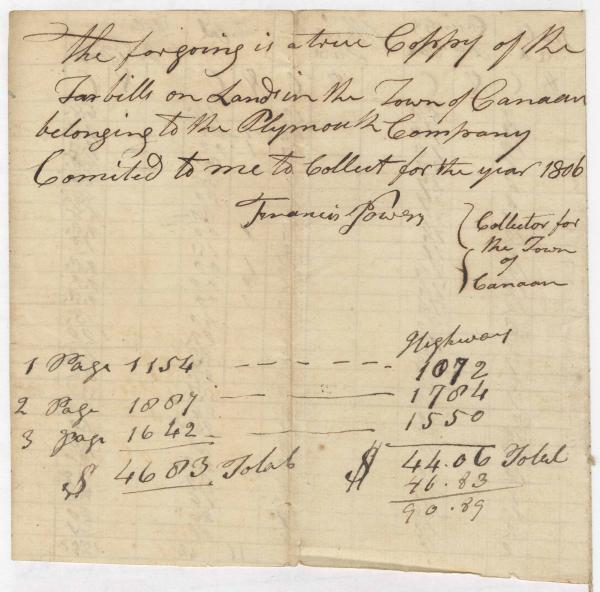 The forgoing is a true Coppy of the
Taxbills on Lands in the Town of Canaan
belonging to the Plymouth Company
Comited to me to Collect for the year 1806
Francis Powers
Collector for
the Town
of
Canaan
Highway
1 Page 1154 1072
2 Page 1887 1784
3 page 1642 1550
$ 4683 Total $ 44.06 Total
46.83
90.89